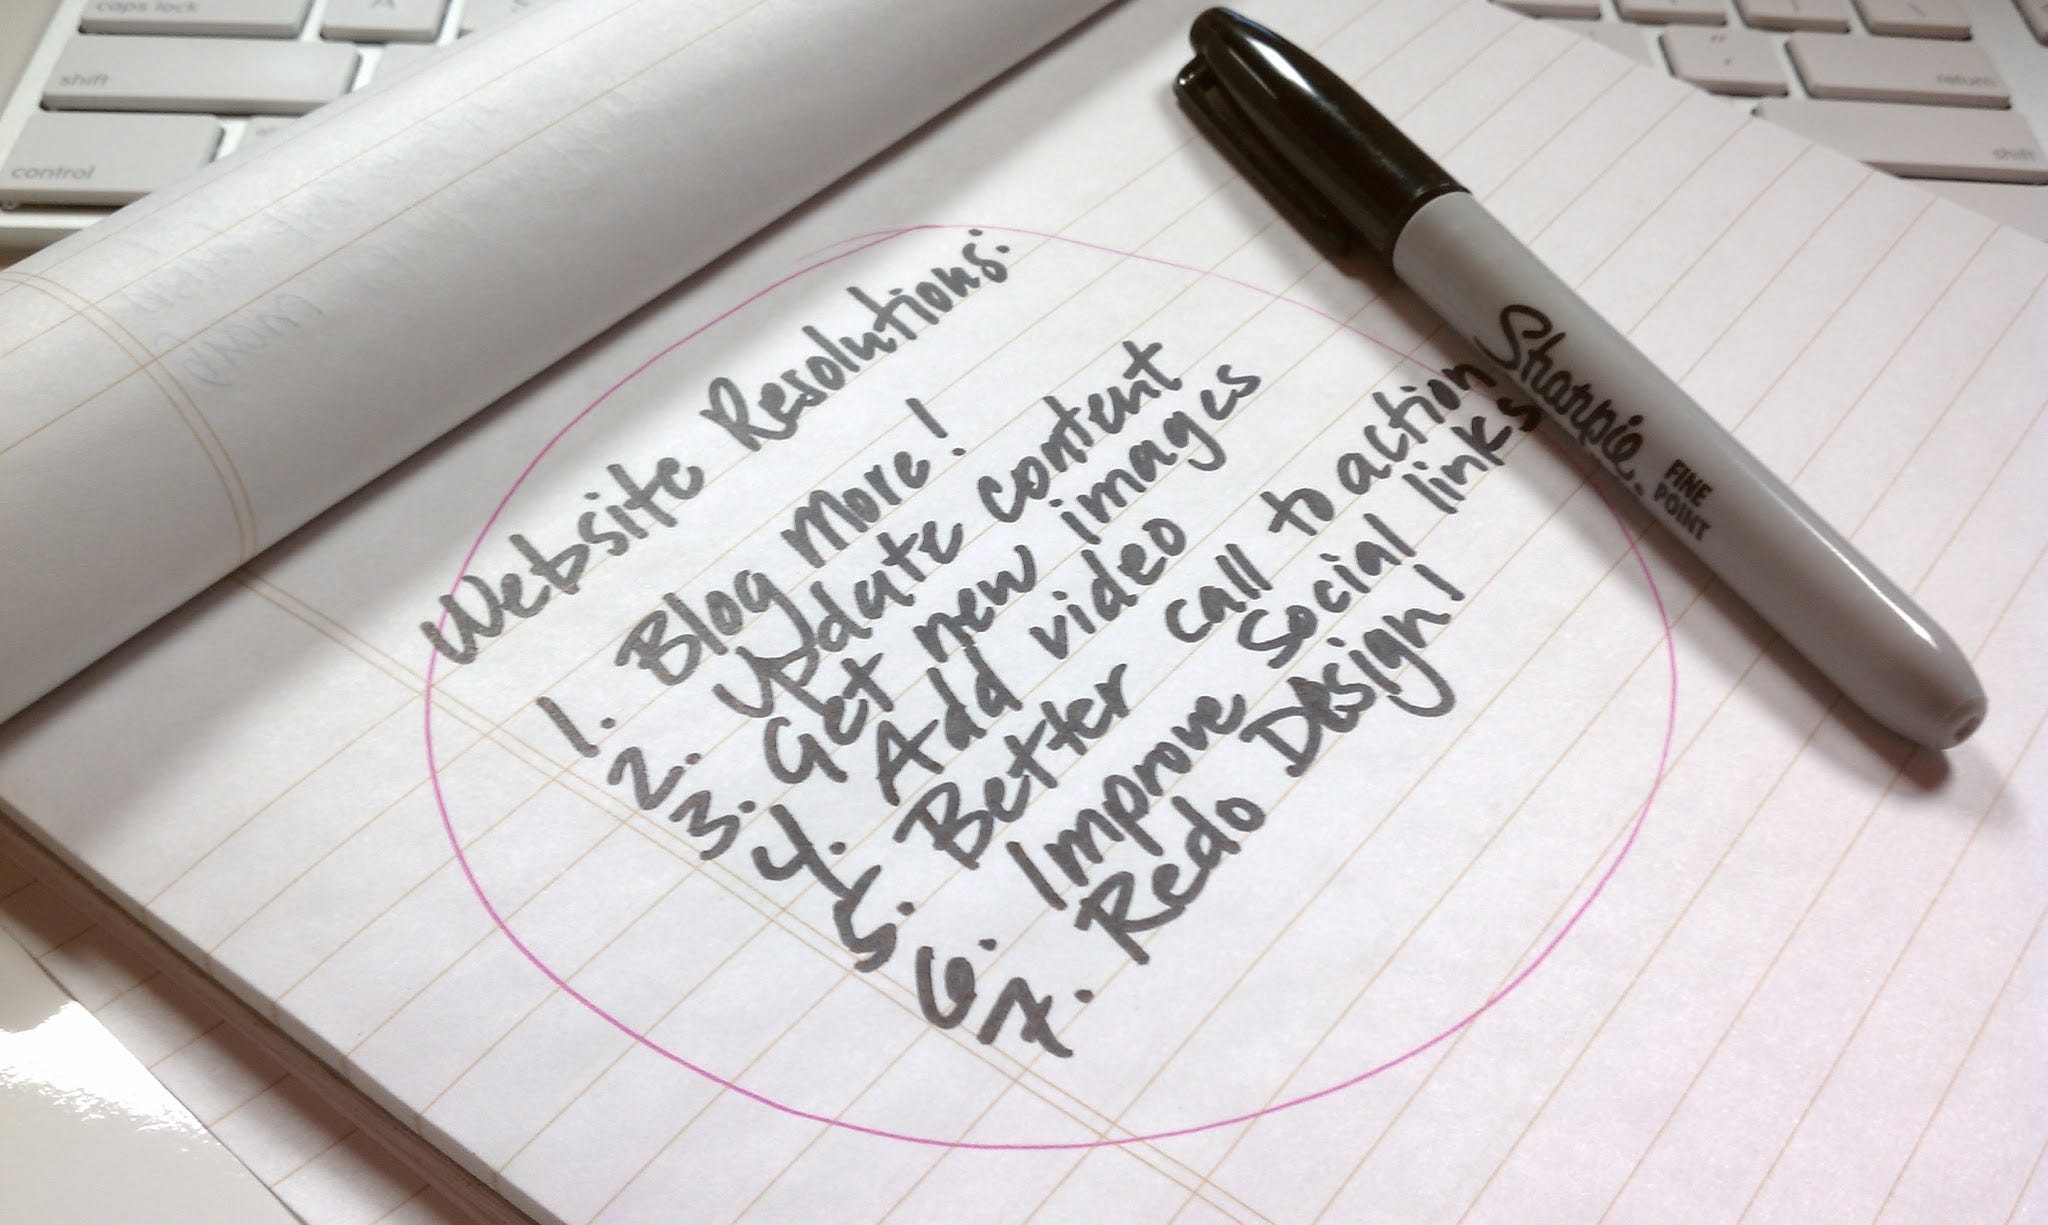 caps lock
A
shift
control
return
shift
Website Resolutions:
1. Blog More!
2. Update content
3. Get new images
4. Add video
5. Better call to action
6. Improve social links
7. Redo Design!
Sharpie.
FINE
POINT